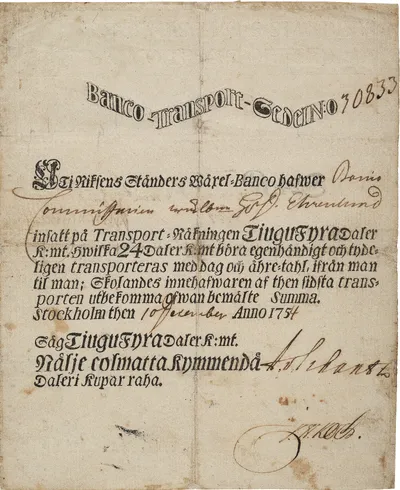 Banco-Transport-Sedel N:o 30833
Uti Riksens Ständers Wäxel-Banco hafwer
Commissarien wälbem
insatt på Transport-Räkningen TiuguFyra Daler
K:mt. hwilka 24 Daler K:mt böra egenhändigt och tyde-
ligen transporteras med dag och åhre-tahl, ifrån man
til man; Skolandes innehafwaren af then sidsta trans-
porten utbekomma ofwanbemälte Summa.
Stockholm then 10 December Anno 1754
Säg TiuguFyra Daler K:mt.
Näljä colmatta Kymmendä
Daleri Kupar raha.